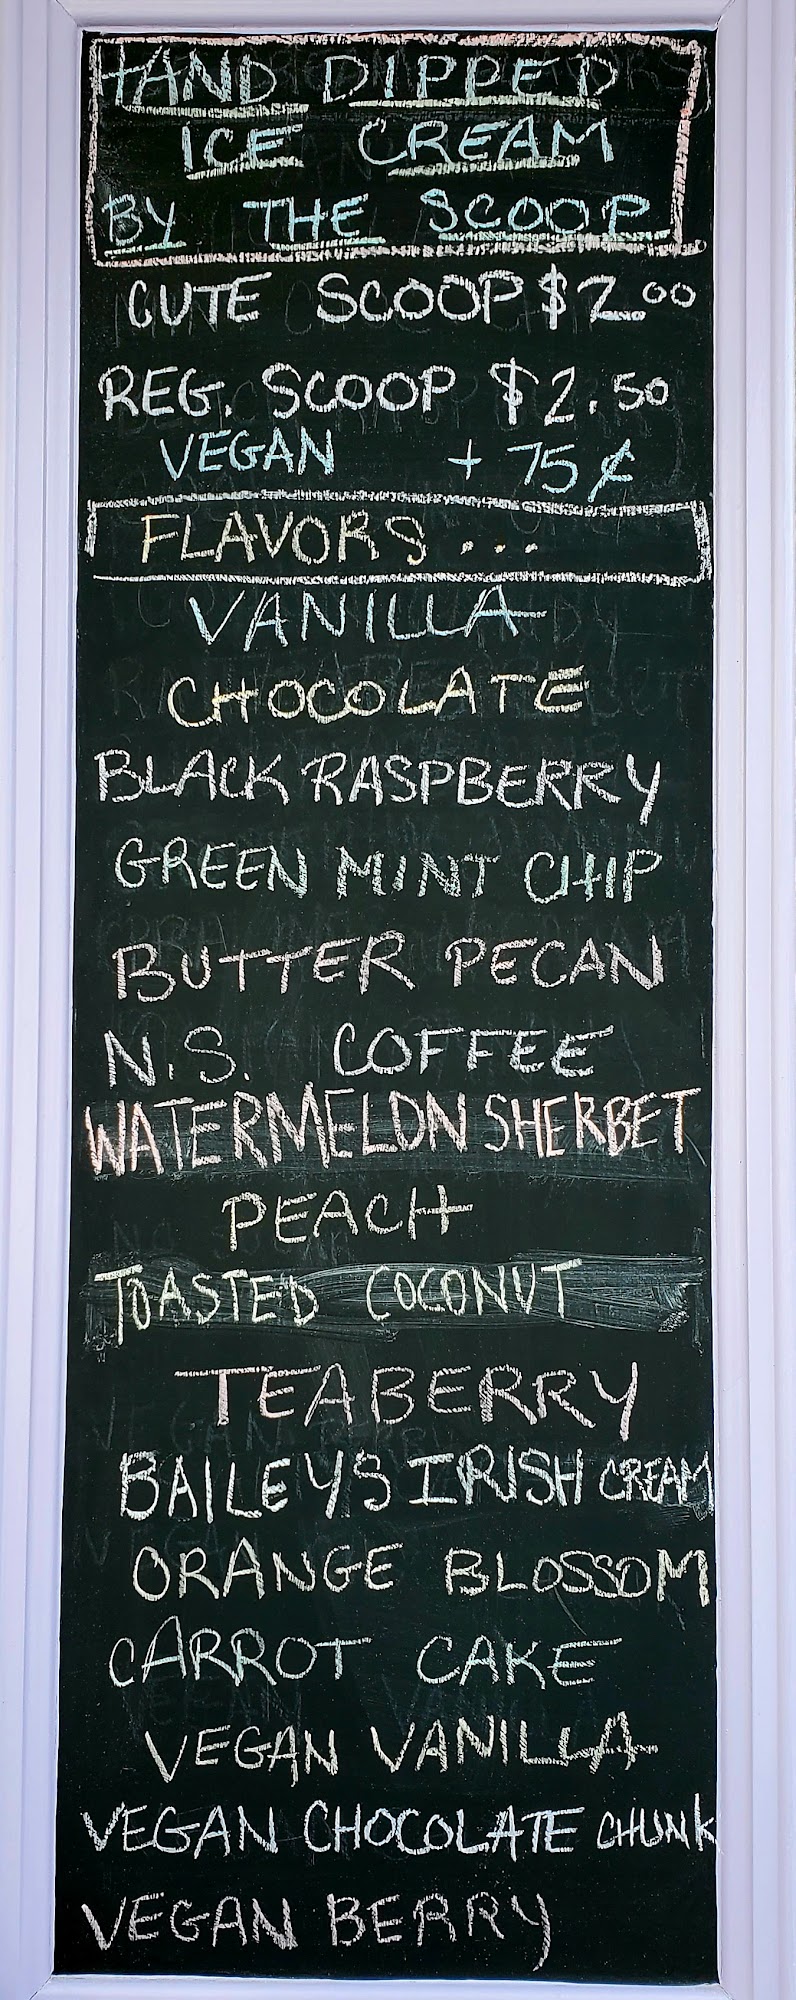 HAND DIPPED
ICE CREAM
BY THE SCOOP
CUTE SCOOP $2.00
REG. SCOOP $2.50
VEGAN + 75¢
FLAVORS...
VANILLA
CHOCOLATE
BLACK RASPBERRY
GREEN MINT CHIP
BUTTER PECAN
N.S. COFFEE
WATERMELON SHERBET
PEACH
TOASTED COCONUT
TEABERRY
BAILEYS IRISH CREAM
ORANGE BLOSSOM
CARROT CAKE
VEGAN VANILLA
VEGAN CHOCOLATE CHUNK
VEGAN BERRY